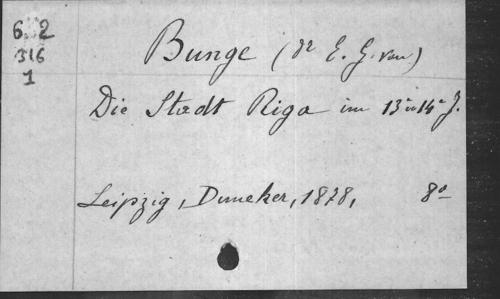 6 2
316
1
Bunge (Dr E. G. von)
Die Stadt Riga im 13 u 14e J.
Leipzig, Duncker, 1878, 8o